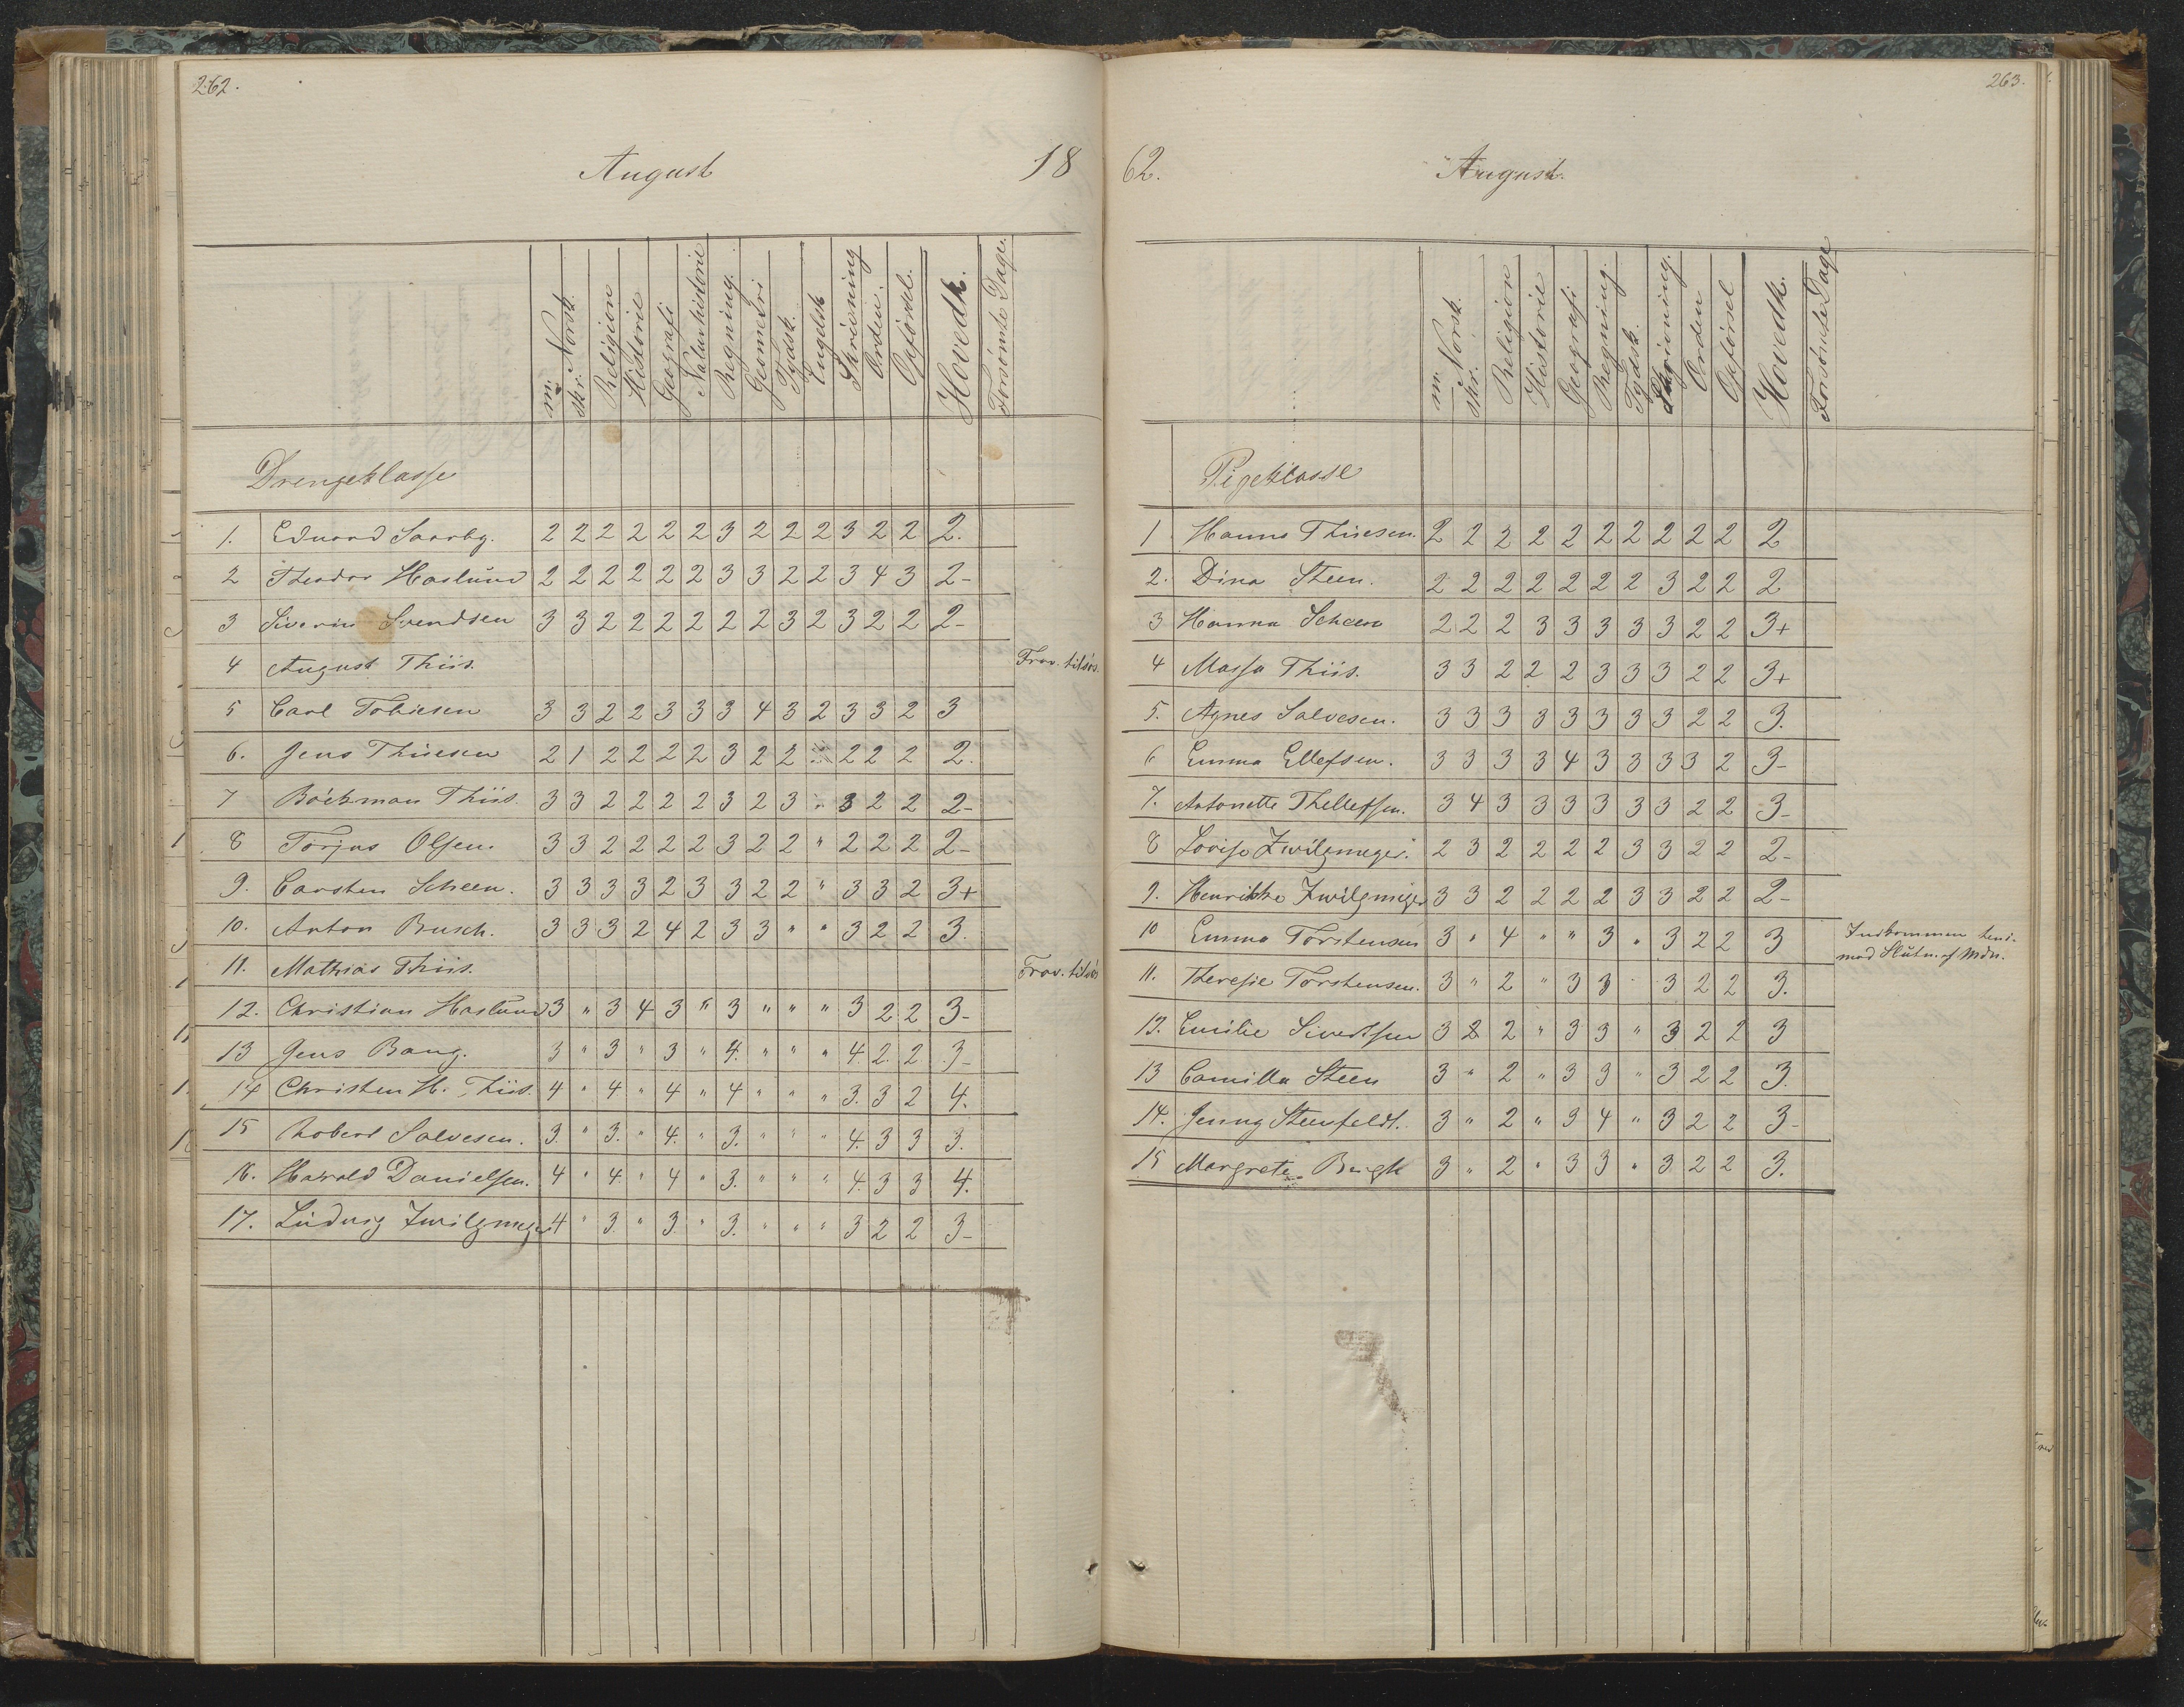 262.
August 18
m. Norsk. skr. Religion Historie Geografi Naturhistorie Regning. Geometri Tydsk. Engelsk Skrivning Orden. Opførsel. Hovedk. Forsömte Dage.
Drengeklasse
1. Eduard Saarby. 2 2 2 2 2 2 3 2 2 2 3 2 2 2.
2 Theodor Haslund 2 2 2 2 2 2 3 3 2 2 3 4 3 2-
3 Siverin Svendsen 3 3 2 2 2 2 2 2 3 2 3 2 2 2-
4 August Thiis. Frav. tilsös.
5 Carl Tobiesen 3 3 2 2 3 3 3 4 3 2 3 3 2 3
6. Jens Thiesen 2 1 2 2 2 2 3 2 2 2 2 2 2.
7 Böckman Thiis. 3 3 2 2 2 2 3 2 3 " 3 2 2 2-
8 Torjus Olsen. 3 3 2 2 2 2 3 2 2 " 2 2 2 2-
9. Carsten Scheen. 3 3 3 3 2 3 3 2 2 " 3 3 2 3+
10. Anton Busch. 3 3 3 2 4 2 3 3 " " 3 2 2 3.
11. Mathias Thiis. Frav. tilsös
12. Christian Haslund 3 " 3 4 3 " 3 " " " 3 2 2 3-
13 Jens Bang. 3 " 3 " 3 " 4. " " " 4 2. 2 3-
14 Christen H. Thiis. 4 " 4 " 4 " 4 " " " 3. 3 2 4.
15 Robert Salvesen. 3. " 3. " 4. " 3. " " " 4. 3 3 3.
16. Harald Danielsen. 4 " 4. " 4 " 3. " " " 4. 3 3 4.
17. Ludvig Zwilgmeyer 4 " 3. " 3. " 3. " " " 3 2 2 3-
263.
62. August.
m. Norsk. skr. Religion Historie Geografi Regning. Tydsk. Skrivning. Orden Opførsel Hovedk. Forsömte Dage
Pigeklasse
1 Hanna Thiesen. 2 2 2 2 2 2 2 2 2 2 2
2. Dina Steen. 2 2 2 2 2 2 2 3 2 2 2
3 Hanna Scheen 2 2 2 3 3 3 3 3 2 2 3+
4 Massa Thiis. 3 3 2 2 2 3 3 3 2 2 3+
5. Agnes Salvesen. 3 3 3 3 3 3 3 3 2 2 3.
6 Emma Ellefsen. 3 3 3 3 4 3 3 3 3 2 3-
7. Antonette Thellefsen. 3 4 3 3 3 3 3 3 2 2 3-
8 Lovise Zwilgmeyer. 2 3 2 2 2 2 3 3 2 2 2-
9. Henrikke Zwilgmeyer 3 3 2 2 2 2 3 3 2 2 2-
10 Emma Torstensen 3 " 4 " " 3 " 3 2 2 3 Indkommen hen-
mod Slutn. af Mdn.
11. Theresie Torstensen. 3 " 2 " 3 3 " 3 2 2 3.
12. Emilie Sivertsen 3 2 2 " 3 3 " 3 2 2 3
13 Camilla Steen 3 " 2 " 3 3 " 3 2 2 3.
14. Jenny Steenfeldt. 3 " 2 " 3 4 " 3 2 2 3-
15 Margrete Bugk 3 " 2 " 3 3 " 3 2 2 3.